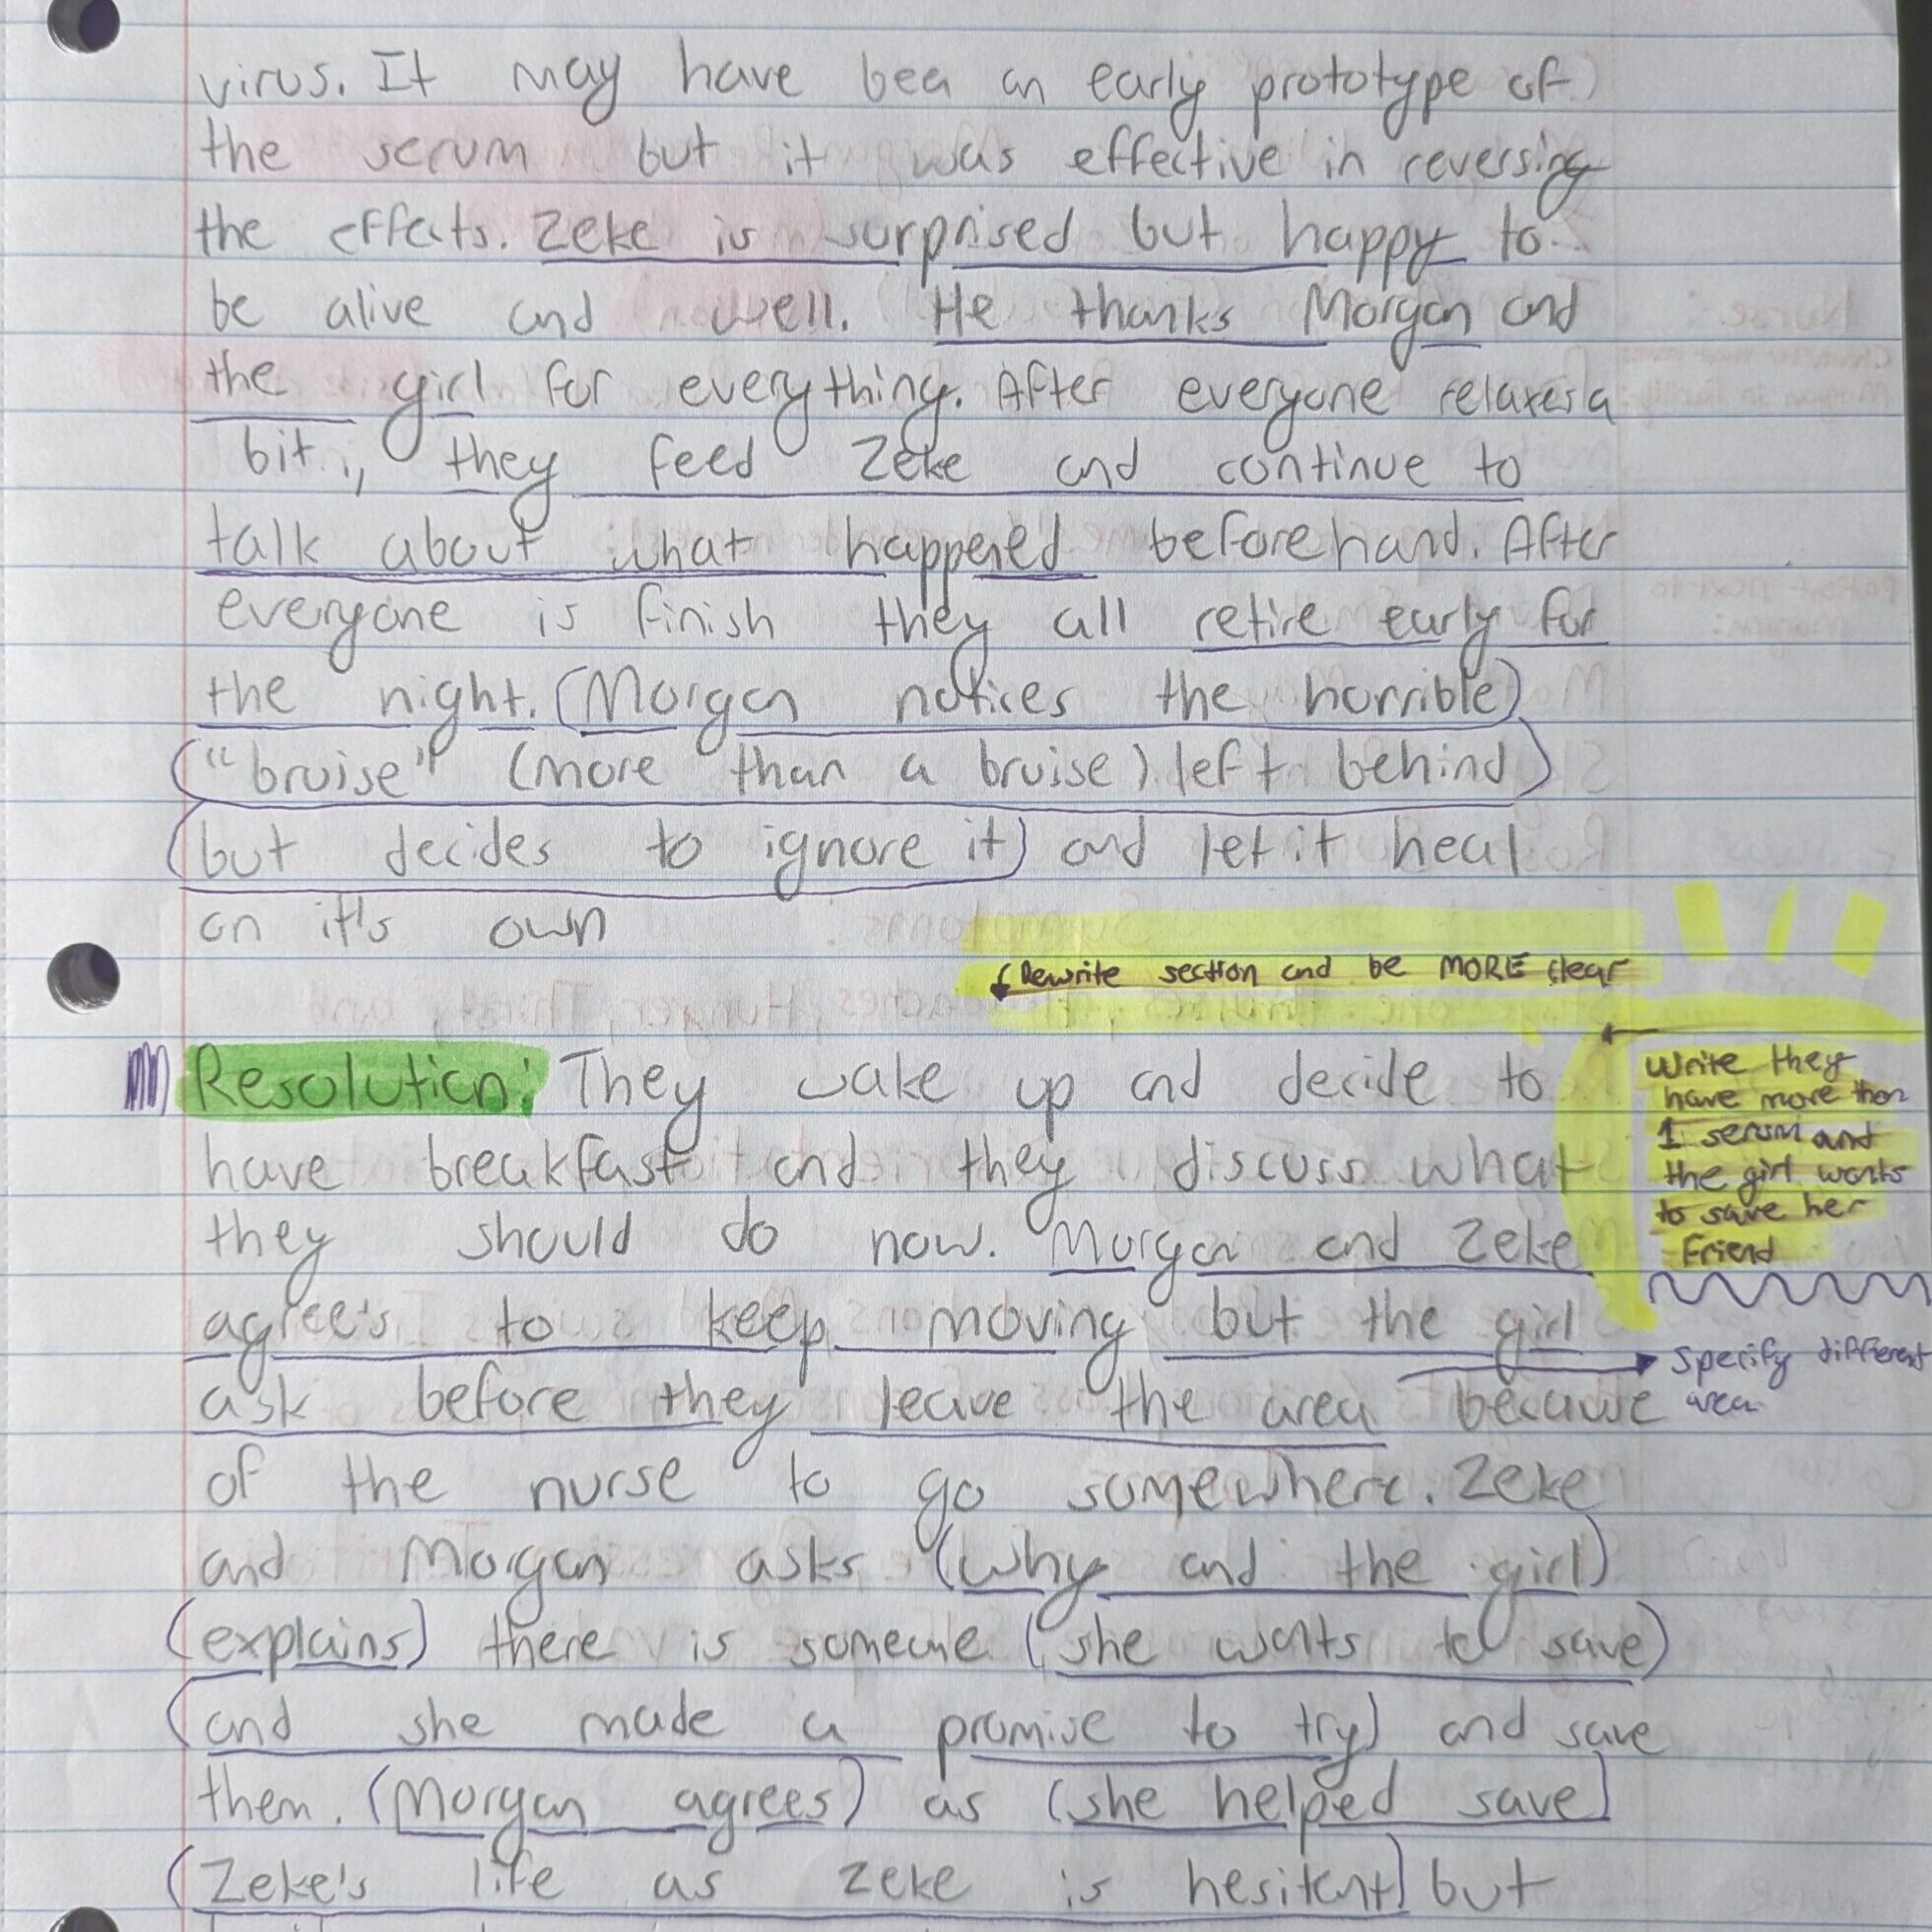 virus. It may have bea an early prototype of
the serum but it was effective in reversing
the effects. Zeke is surprised but happy to
be alive and well. He thanks Morgan and
the girl for everything. After everyone relaxes a
bit, they feed Zeke and continue to
talk about what happened beforehand. After
everyone is finish they all retire early for
the night. (Morgan notices the horrible)
("bruise" (more than a bruise) left behind)
(but decides to ignore it) and let it heal
on it's own
Rewrite section and be MORE clear
Resolution: They wake up and decide to
have breakfast and they discuss what
they should do now. Morgan and Zeke
agree's to keep moving but the girl
ask before they leave the area because
of the nurse to go somewhere. Zeke
and Morgan asks (why and the girl)
(explains) there is someone (she wants to save)
(and she made a promise to try) and save
them. (Morgan agrees) as (she helped save)
(Zeke's life as Zeke is hesitent) but
Write they
have more than
1 serum and
the girl wants
to save her
Friend
Specify different
area